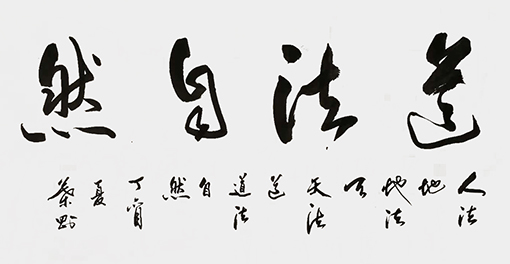 道法自然
人法
地
地法
天
天法
道
道法
自
然
丁酉
夏